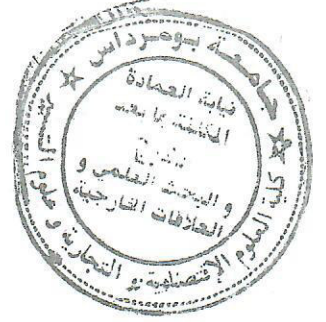 جامعة بومرداس
كلية العلوم الإقتصادية و التجارية و علوم
نيابة العمادة
المكلفة بما بعد
و البحث العلمي و
العلاقات الخارجية